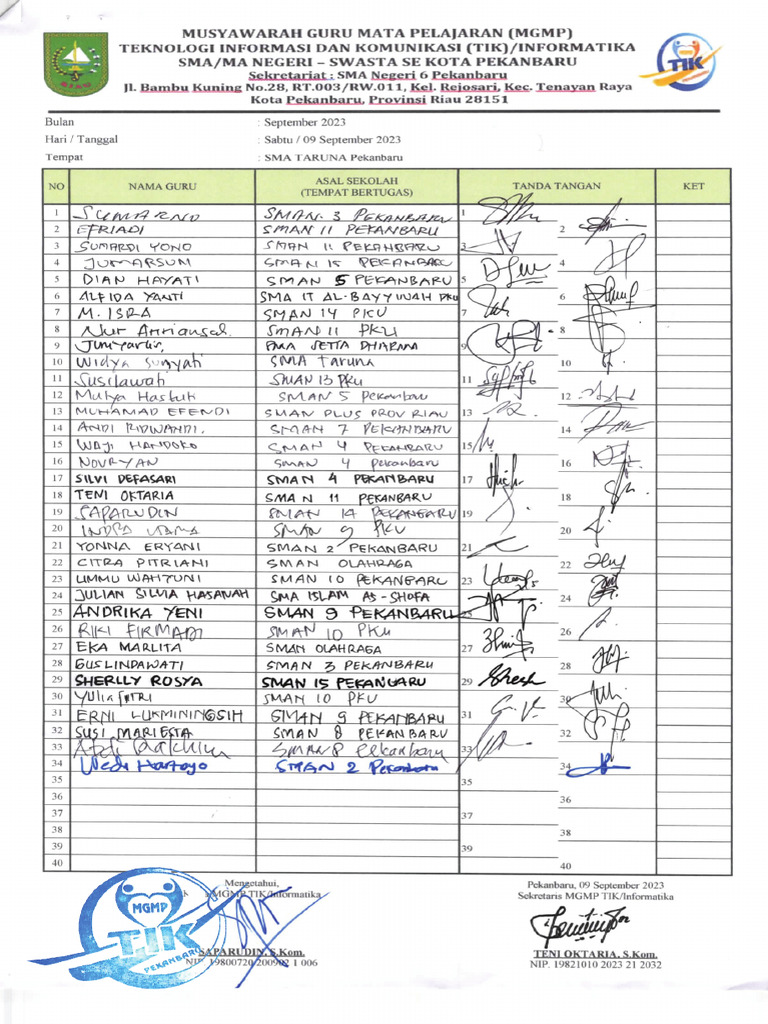 MUSYAWARAH GURU MATA PELAJARAN (MGMP)
TEKNOLOGI INFORMASI DAN KOMUNIKASI (TIK)/INFORMATIKA
SMA/MA NEGERI – SWASTA SE KOTA PEKANBARU
Sekretariat : SMA Negeri 6 Pekanbaru
Jl. Bambu Kuning No.28, RT.003/RW.011, Kel. Rejosari, Kec. Tenayan Raya
Kota Pekanbaru, Provinsi Riau 28151
RIAU
TIK
Bulan : September 2023
Hari / Tanggal : Sabtu / 09 September 2023
Tempat : SMA TARUNA Pekanbaru
NO NAMA GURU ASAL SEKOLAH (TEMPAT BERTUGAS) TANDA TANGAN KET
1 SUMARNO SMAN 3 PEKANBARU 1
2 EFRIADI SMAN 11 PEKANBARU 2
3 SUMARDI YONO SMAN 11 PEKANBARU 3
4 JUMARSUM SMAN 15 PEKANBARU 4
5 DIAN HAYATI SMAN 5 PEKANBARU 5
6 ALFIDA YANTI SMA IT AL-BAYYINAH PKU 6
7 M. ISRA SMAN 14 PKU 7
8 Nur SMAN 11 PKU 8
9 SETIA DHARMA 9
10 Widya SMA Taruna 10
11 Susilawati SMAN 13 PKU 11
12 Mutya Hastuti SMAN 5 Pekanbaru 12
13 MUHAMAD EFENDI SMAN PLUS PROV RIAU 13
14 ANDI RIDWANDI. SMAN 7 PEKANBARU 14
15 WAJI HANDOKO SMAN 4 PEKANBARU 15
16 NOVRYAN SMAN 4 Pekanbaru 16
17 SILVI DEFASARI SMAN 4 PEKANBARU 17
18 TENI OKTARIA SMAN 11 PEKANBARU 18
19 SAPARUDIN SMAN 14 PEKANBARU 19
20 INDRA UTAMA SMAN 9 PKU 20
21 YONNA ERYANI SMAN 2 PEKANBARU 21
22 CITRA PITRIANI SMAN OLAHRAGA 22
23 UMMU WAHYUNI SMAN 10 PEKANBARU 23
24 JULIAN SILVIA HASANAH SMA ISLAM AS-SHOFA 24
25 ANDRIKA YENI SMAN 9 PEKANBARU 25
26 RIKI FIRMADI SMAN 10 PKU 26
27 EKA MARLITA SMAN OLAHRAGA 27
28 GUSLINDAWATI SMAN 3 PEKANBARU 28
29 SHERLLY ROSYA SMAN 15 PEKANBARU 29
30 SMAN 10 PKU 30
31 ERNI LUKMININGSIH SMAN 9 PEKANBARU 31
32 SUSI MARIESTA SMAN 8 PEKANBARU 32
33 SMAN 8 Pekanbaru 33
34 Wedi Hartoyo SMAN 2 Pekanbaru 34
35 35
36 36
37 37
38 38
39 39
40 40
Mengetahui,
MGMP TIK/Informatika
SAPARUDIN, S.Kom.
NIP. 19800720 200902 1 006
MGMP
TIK
PEKANBARU
Pekanbaru, 09 September 2023
Sekretaris MGMP TIK/Informatika
TENI OKTARIA, S.Kom.
NIP. 19821010 2023 21 2032